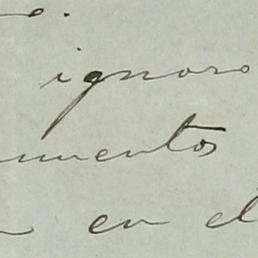 o.
ignoro
umentos
en el